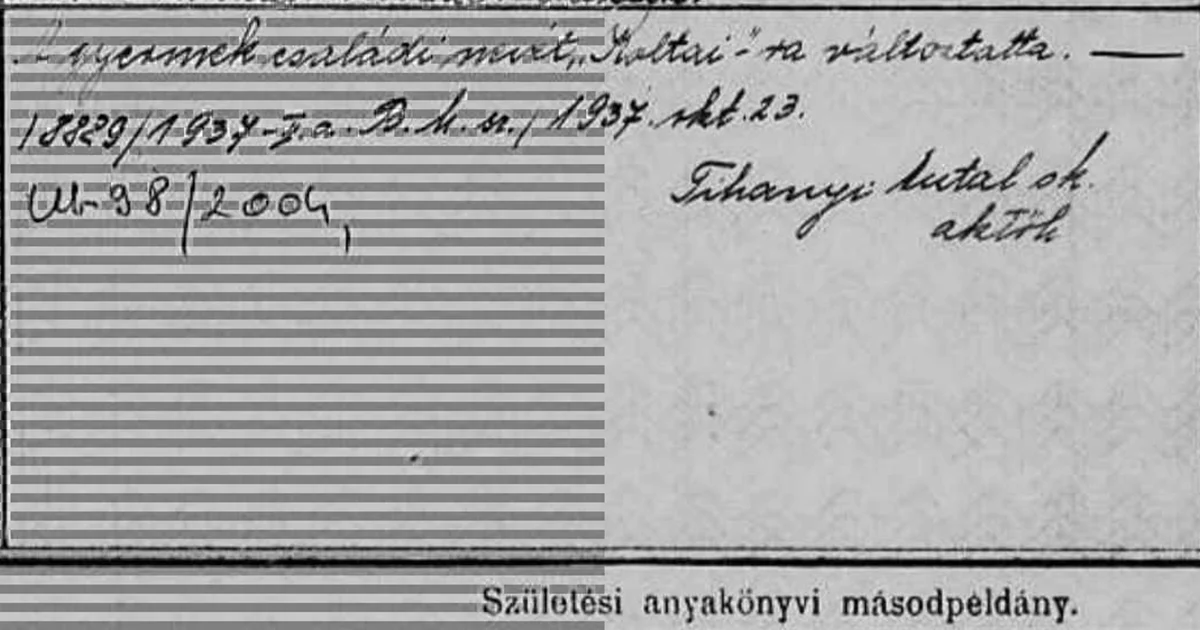 A gyermek családi nevét „Koltai"-ra változtatta. —
/8829/1937-II.a. B. M. sz./ 1937. okt. 23.
98/2004,
Tihanyi Antal sk.
aktöh
Születési anyakönyvi másodpéldány.